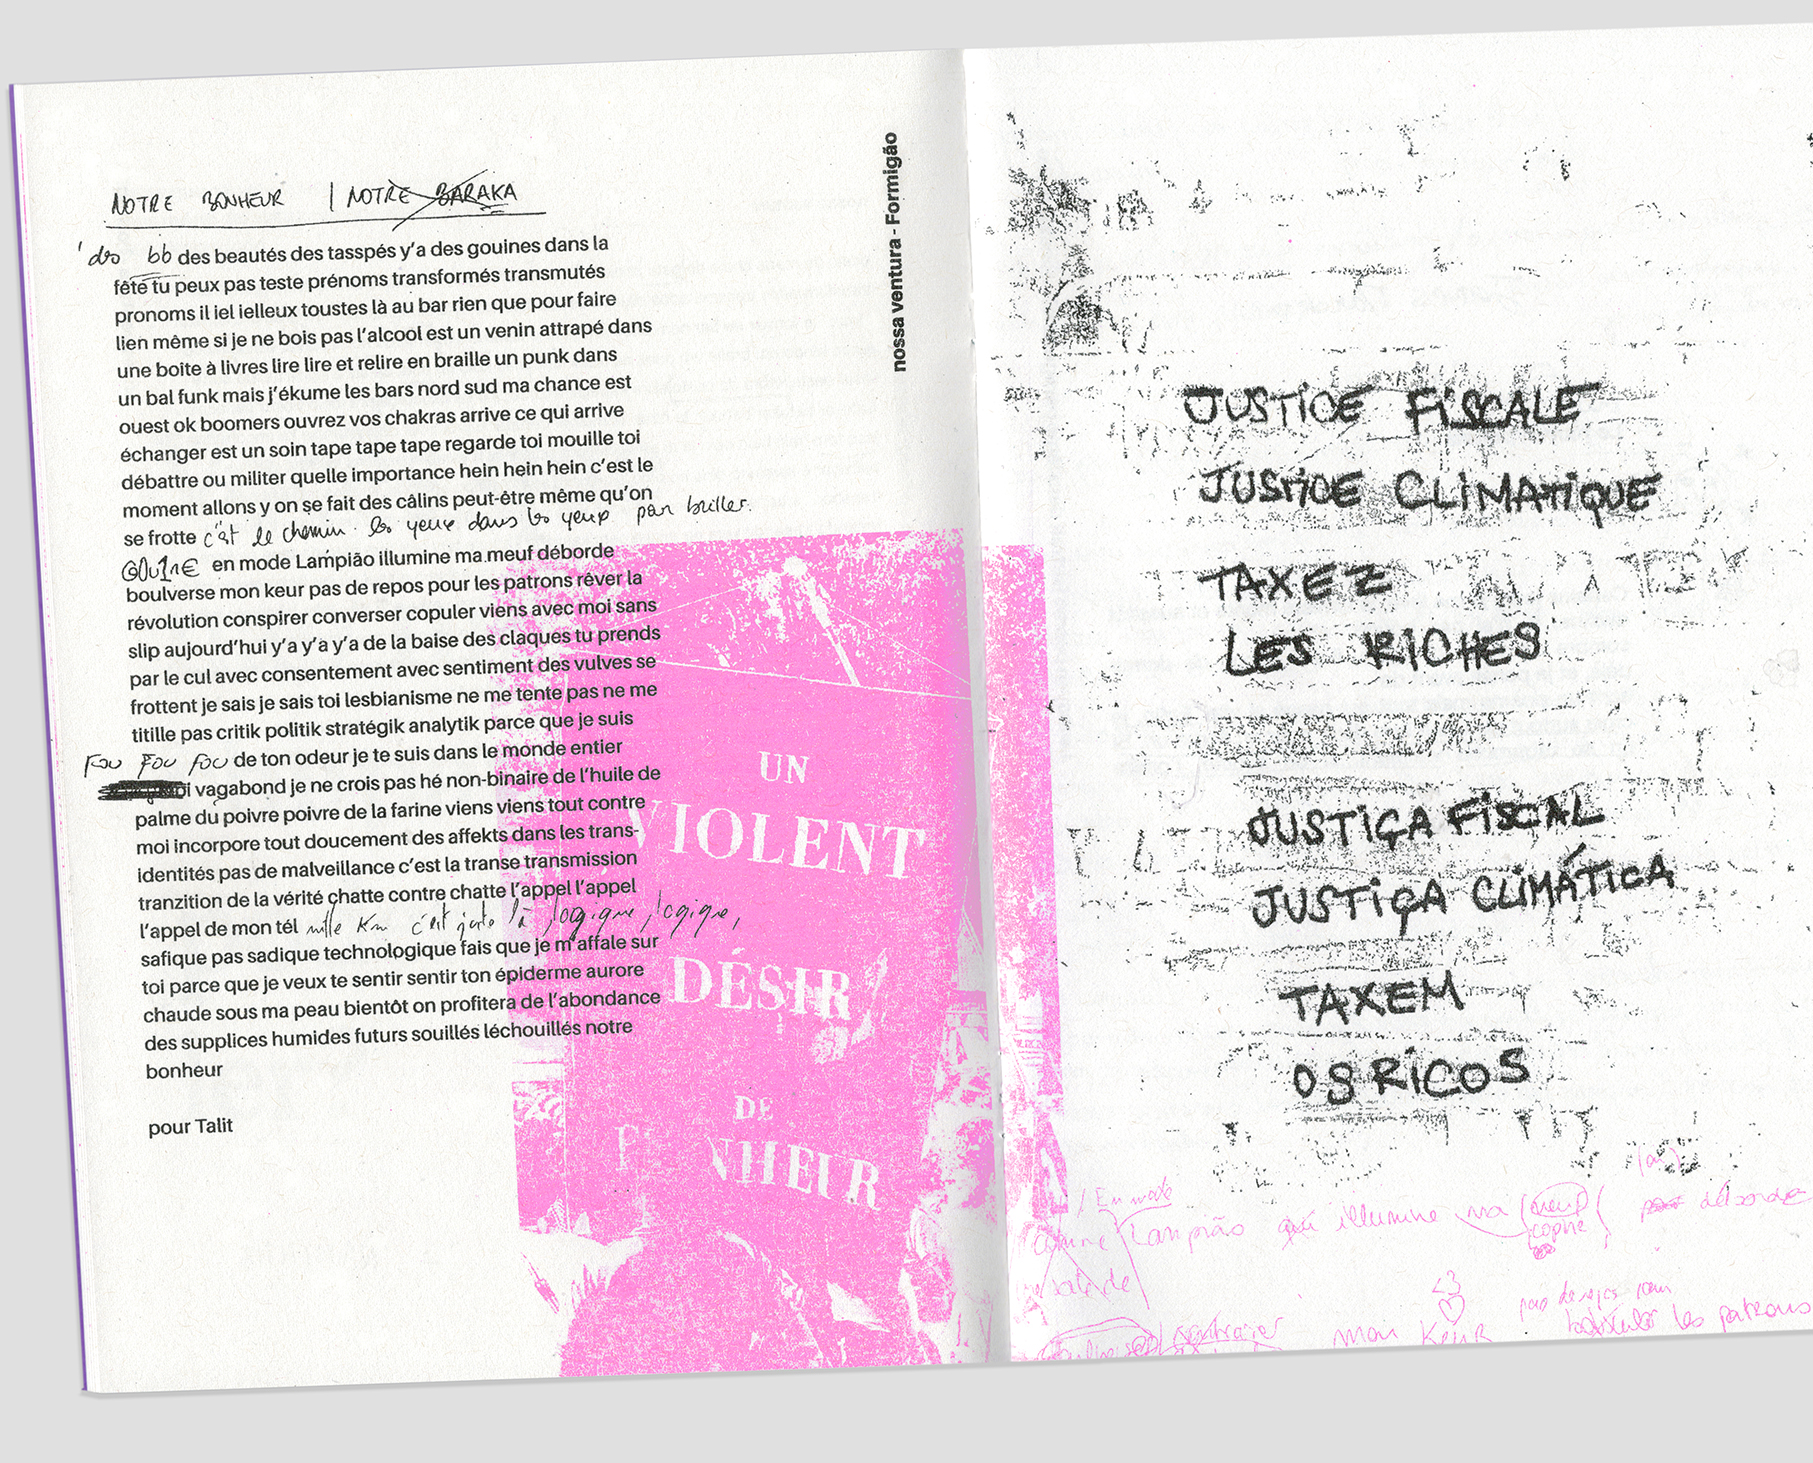 NOTRE BONHEUR | NOTRE BARAKA
des bb des beautés des tasspés y'a des gouines dans la
fête tu peux pas teste prénoms transformés transmutés
pronoms il iel ielleux toustes là au bar rien que pour faire
lien même si je ne bois pas l'alcool est un venin attrapé dans
une boite à livres lire lire et relire en braille un punk dans
un bal funk mais j'ékume les bars nord sud ma chance est
ouest ok boomers ouvrez vos chakras arrive ce qui arrive
échanger est un soin tape tape tape regarde toi mouille toi
débattre ou militer quelle importance hein hein hein c'est le
moment allons y on se fait des câlins peut-être même qu'on
se frotte c'est le chemin les yeux dans les yeux par briller.
GOUINE en mode Lampião illumine ma meuf déborde
boulverse mon keur pas de repos pour les patrons rêver la
révolution conspirer converser copuler viens avec moi sans
slip aujourd'hui y'a y'a y'a de la baise des claques tu prends
par le cul avec consentement avec sentiment des vulves se
frottent je sais je sais toi lesbianisme ne me tente pas ne me
titille pas critik politik stratégik analytik parce que je suis
FOU FOU FOU de ton odeur je te suis dans le monde entier
oi vagabond je ne crois pas hé non-binaire de l'huile de
palme du poivre poivre de la farine viens viens tout contre
moi incorpore tout doucement des affekts dans les trans-
identités pas de malveillance c'est la transe transmission
tranzition de la vérité chatte contre chatte l'appel l'appel
l'appel de mon tél mille km c'est juste là logique, logique,
safique pas sadique technologique fais que je m'affale sur
toi parce que je veux te sentir sentir ton épiderme aurore
chaude sous ma peau bientôt on profitera de l'abondance
des supplices humides futurs souillés léchouillés notre
bonheur
pour Talit
nossa ventura - Formigão
UN
VIOLENT
DÉSIR
DE
NHEUR
JUSTICE FISCALE
JUSTICE CLIMATIQUE
TAXEZ
LES RICHES
JUSTIÇA FISCAL
JUSTIÇA CLIMÁTICA
TAXEM
OS RICOS
/ En mode
comme Lampião qui illumine ma meuf déborde
copine
balade
<3
mon KEUR
les patrons